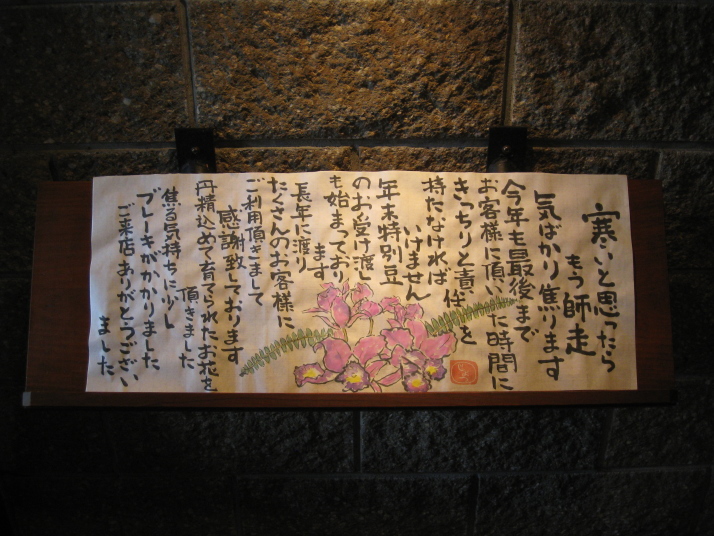 寒いと思ったら
もう師走
気ばかり焦ります
今年も最後まで
お客様に頂いた時間に
きっちりと責任を
持たなければ
いけません
年末特別豆
のお受け渡し
も始まっており
ます
長年に渡り
たくさんのお客様に
ご利用頂きまして
感謝致しております
丹精込めて育てられたお花を
頂きました
焦る気持ちに少し
ブレーキがかかりました
ご来店ありがとうござい
ました